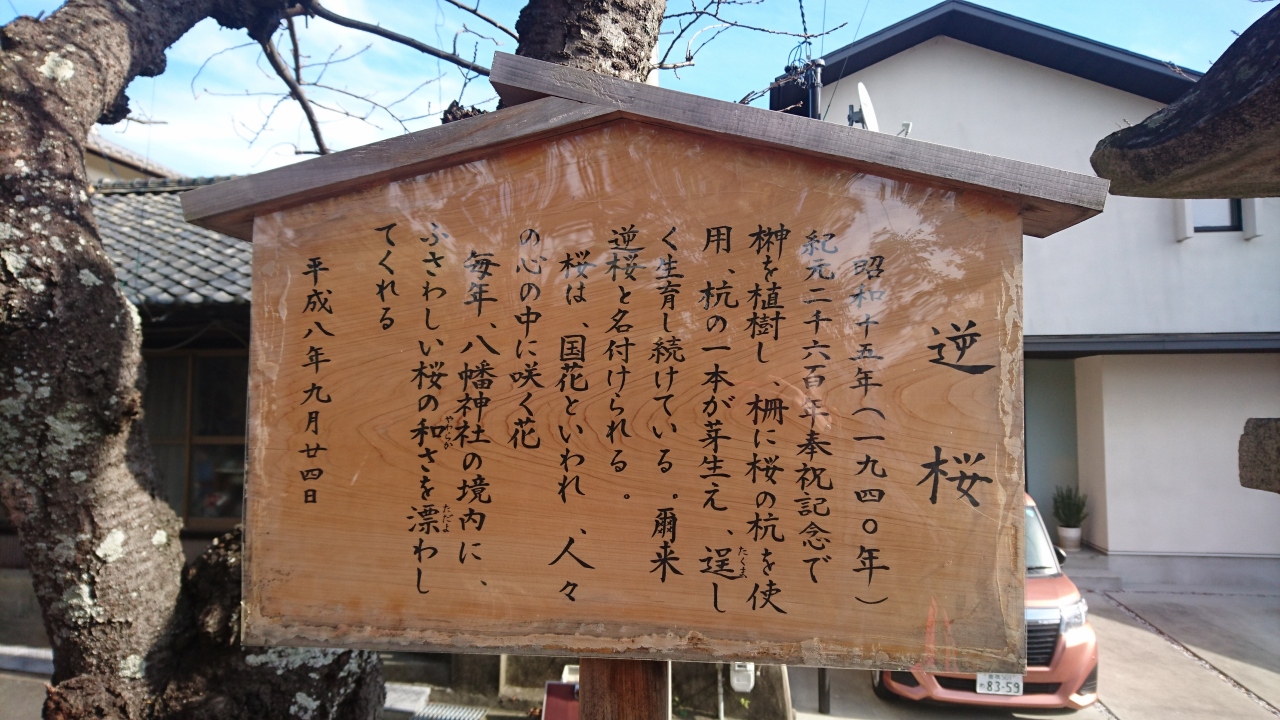 逆桜
昭和十五年(一九四〇年)
紀元二千六百年奉祝記念で
榊を植樹し、柵に桜の杭を使
用、杭の一本が芽生え、逞し
たくま
く生育し続けている。爾来
逆桜と名付けられる。
桜は、国花といわれ、人々
の心の中に咲く花
毎年、八幡神社の境内に、
ふさわしい桜の和さを漂わし
やわらか
ただよ
てくれる
平成八年九月廿四日
83-59